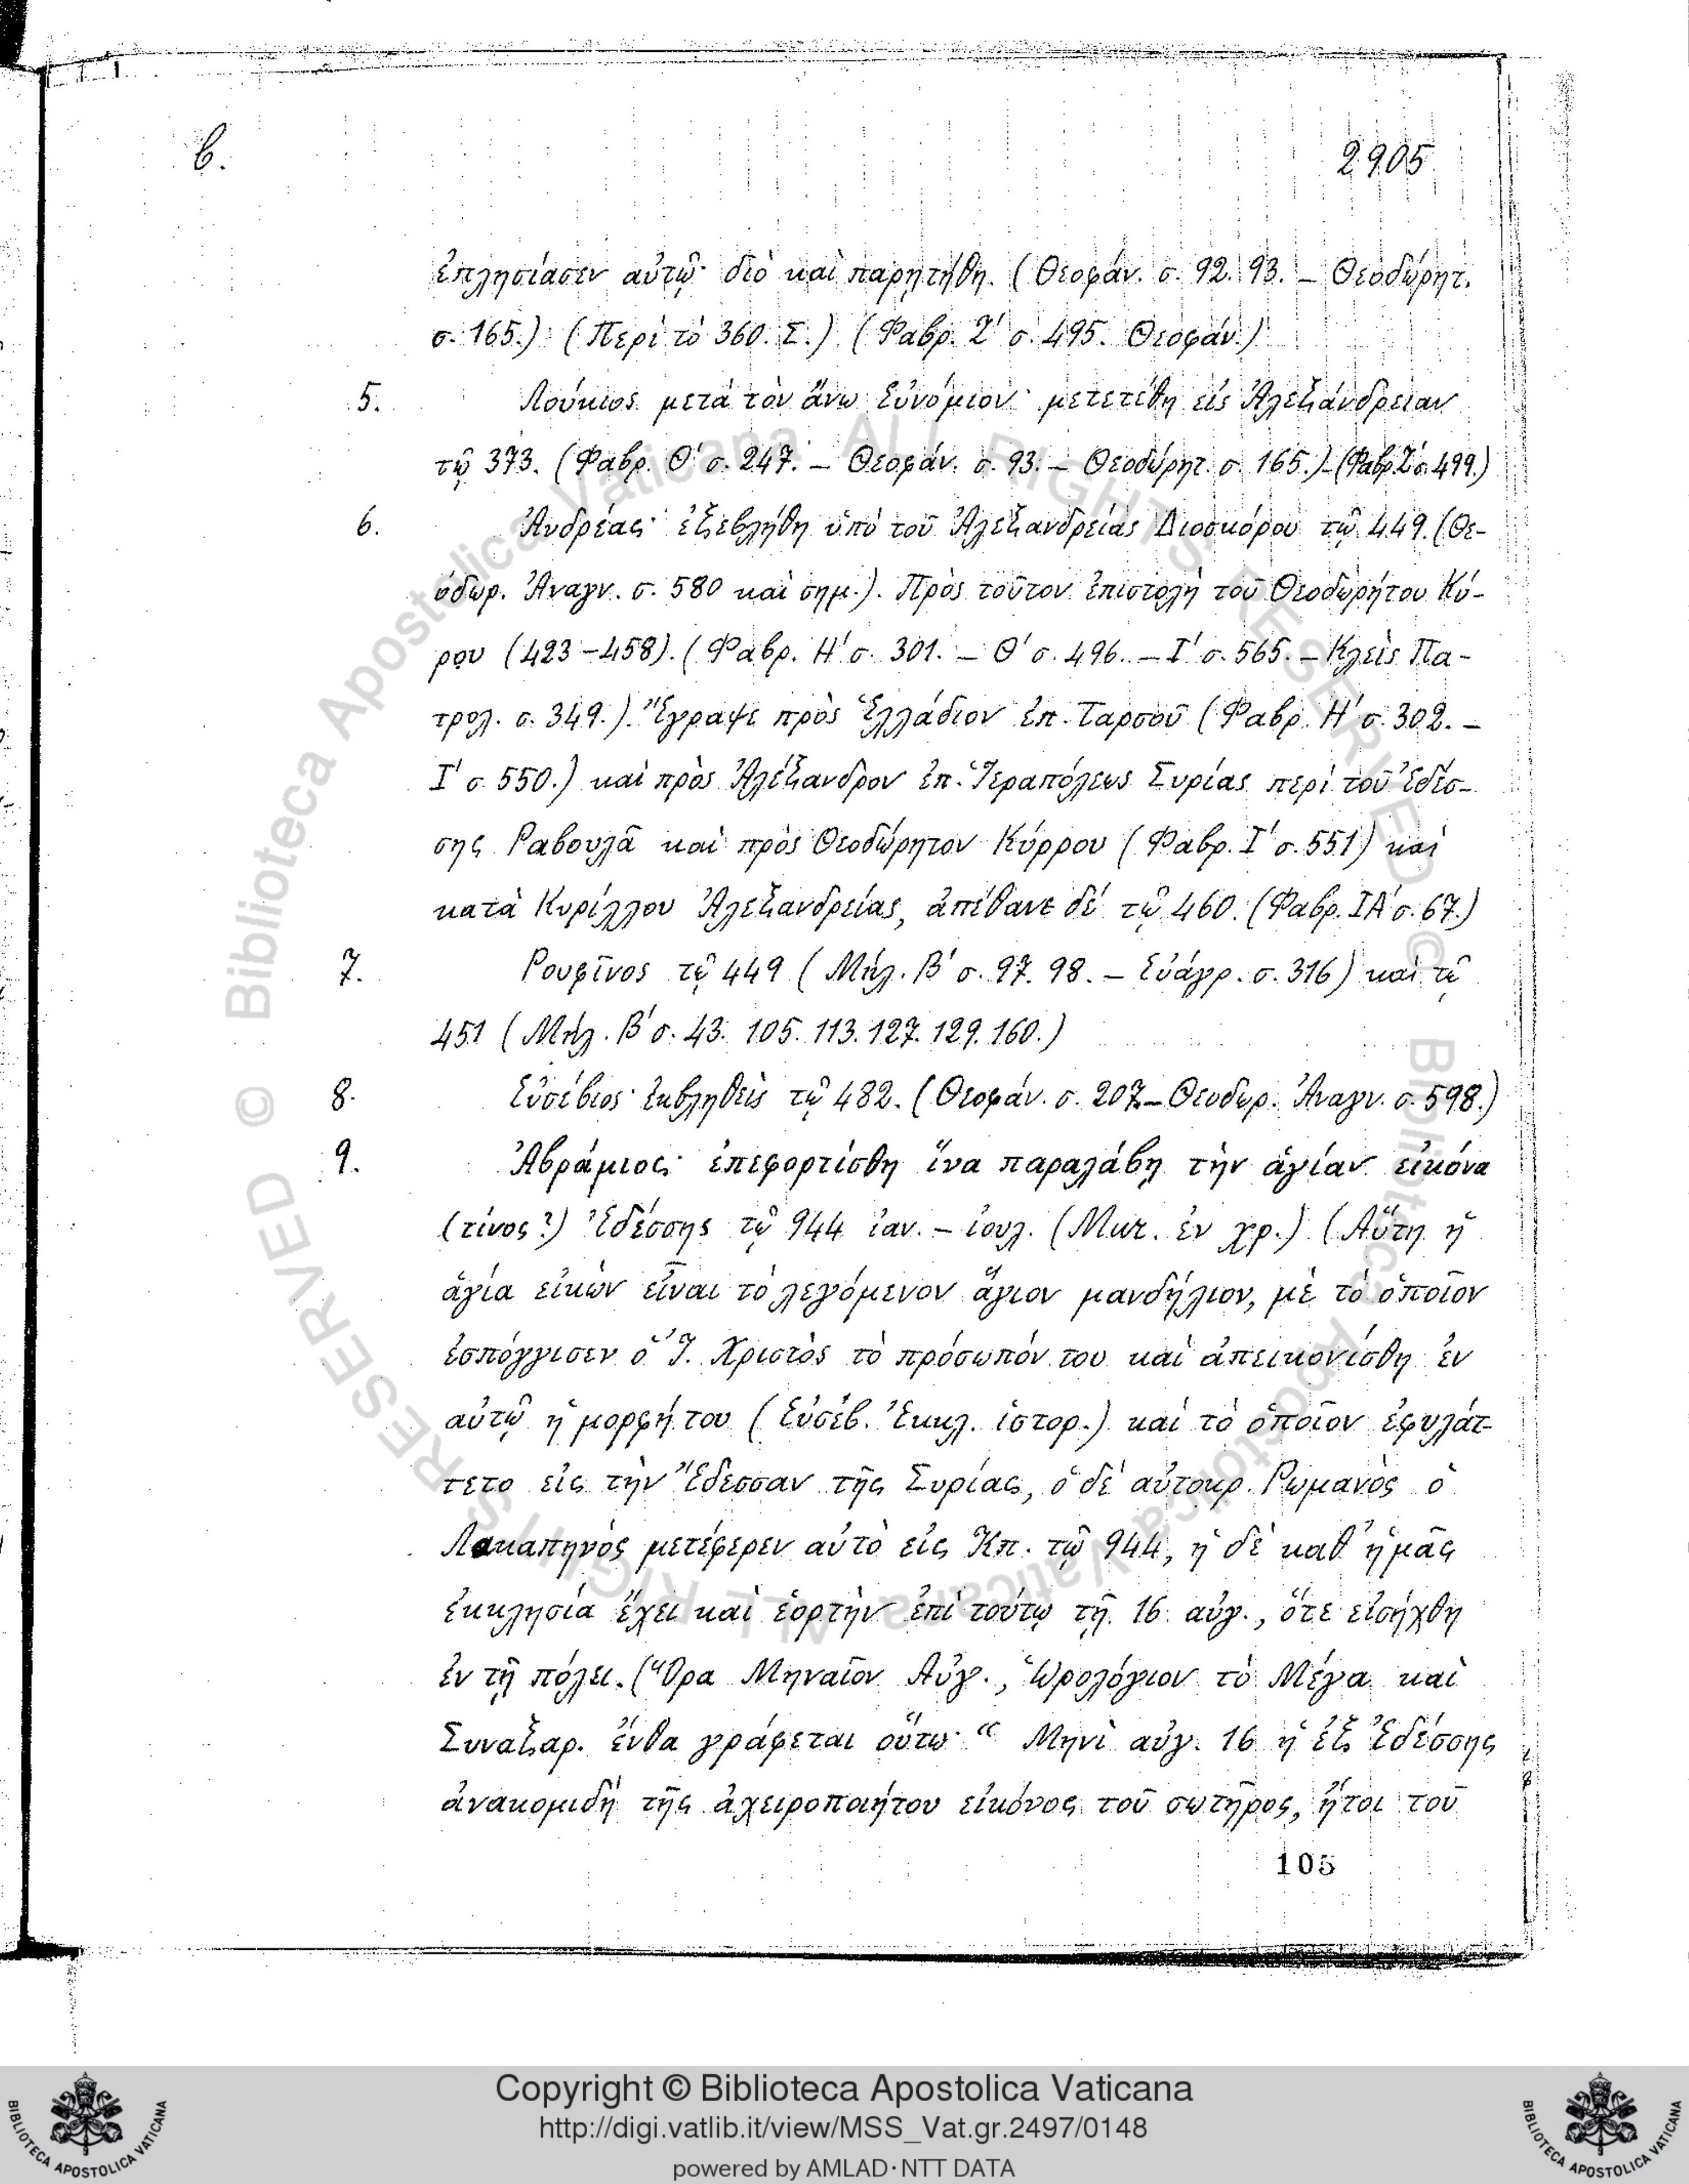 β. 2905
ἐπλησίασεν αὐτῷ· διὸ καὶ παρῃτήθη. (Θεοφάν. σ. 92. 93. – Θεοδώρητ.
σ. 165.) (Περὶ τὸ 360. Σ.) (Φαβρ. Ζ' σ. 495. Θεοφάν.)
5. Λούκιος μετὰ τὸν ἄνω Εὐνόμιον· μετετέθη εἰς Ἀλεξάνδρειαν
τῷ 373. (Φαβρ. Θ' σ. 247. – Θεοφάν. σ. 93. – Θεοδώρητ. σ. 165.)–(Φαβρ. Ζ' σ. 499.)
6. Ἀνδρέας· ἐξεβλήθη ὑπὸ τοῦ Ἀλεξανδρείας Διοσκόρου τῷ 449. (Θε-
όδωρ. Ἀναγν. σ. 580 καὶ σημ.). Πρὸς τοῦτον ἐπιστολὴ τοῦ Θεοδωρήτου Κύ-
ρου (423–458). (Φαβρ. Η' σ. 301. – Θ' σ. 496. – Ι' σ. 565. – Κλεὶς Πα-
τρολ. σ. 349.). Ἔγραψε πρὸς Ἑλλάδιον ἐπ. Ταρσοῦ (Φαβρ. Η' σ. 302. –
Ι' σ. 550.) καὶ πρὸς Ἀλέξανδρον ἐπ. Ἱεραπόλεως Συρίας περὶ τοῦ Ἐδέσ-
σης Ραβουλᾶ καὶ πρὸς Θεοδώρητον Κύρρου (Φαβρ. Ι' σ. 551) καὶ
κατὰ Κυρίλλου Ἀλεξανδρείας, ἀπέθανε δὲ τῷ 460. (Φαβρ. ΙΑ' σ. 67.)
7. Ρουφῖνος τῷ 449 (Μήλ. Β' σ. 97. 98. – Εὐάγρ. σ. 316) καὶ τῷ
451 (Μήλ. Β' σ. 43. 105. 113. 127. 129. 160.)
8. Εὐσέβιος· ἐκβληθεὶς τῷ 482. (Θεοφάν. σ. 207.–Θεοδωρ. Ἀναγν. σ. 598.)
9. Ἀβράμιος· ἐπεφορτίσθη ἵνα παραλάβῃ τὴν ἁγίαν εἰκόνα
(τίνος?) Ἐδέσσης τῷ 944 ἰαν. – ἰουλ. (Μικ. ἐν χρ.) (Αὕτη ἡ
ἁγία εἰκὼν εἶναι τὸ λεγόμενον ἅγιον μανδήλιον, μὲ τὸ ὁποῖον
ἐσπόγγισεν ὁ Ἰ. Χριστὸς τὸ πρόσωπόν του καὶ ἀπεικονίσθη ἐν
αὐτῷ ἡ μορφή του (Εὐσέβ. Ἐκκλ. ἱστορ.) καὶ τὸ ὁποῖον ἐφυλάτ-
τετο εἰς τὴν Ἔδεσσαν τῆς Συρίας, ὁ δὲ αὐτοκρ. Ρωμανὸς ὁ
Λακαπηνὸς μετέφερεν αὐτὸ εἰς Κπ. τῷ 944, ἡ δὲ καθ' ἡμᾶς
ἐκκλησία ἔχει καὶ ἑορτὴν ἐπὶ τούτῳ τῇ 16 αὐγ., ὅτε εἰσήχθη
ἐν τῇ πόλει. (Ὅρα Μηναῖον Αὐγ., Ὡρολόγιον τὸ Μέγα καὶ
Συναξαρ. ἔνθα γράφεται οὕτω· “ Μηνὶ αὐγ. 16 ἡ ἐξ Ἐδέσσης
ἀνακομιδὴ τῆς ἀχειροποιήτου εἰκόνος τοῦ σωτῆρος, ἤτοι τοῦ
105
© Biblioteca Apostolica Vaticana ALL RIGHTS RESERVED © Biblioteca Apostolica Vaticana ALL RIGHTS RESERVED
Copyright © Biblioteca Apostolica Vaticana
http://digi.vatlib.it/view/MSS_Vat.gr.2497/0148
powered by AMLAD·NTT DATA
BIBLIOTECA APOSTOLICA VATICANA
BIBLIOTECA APOSTOLICA VATICANA